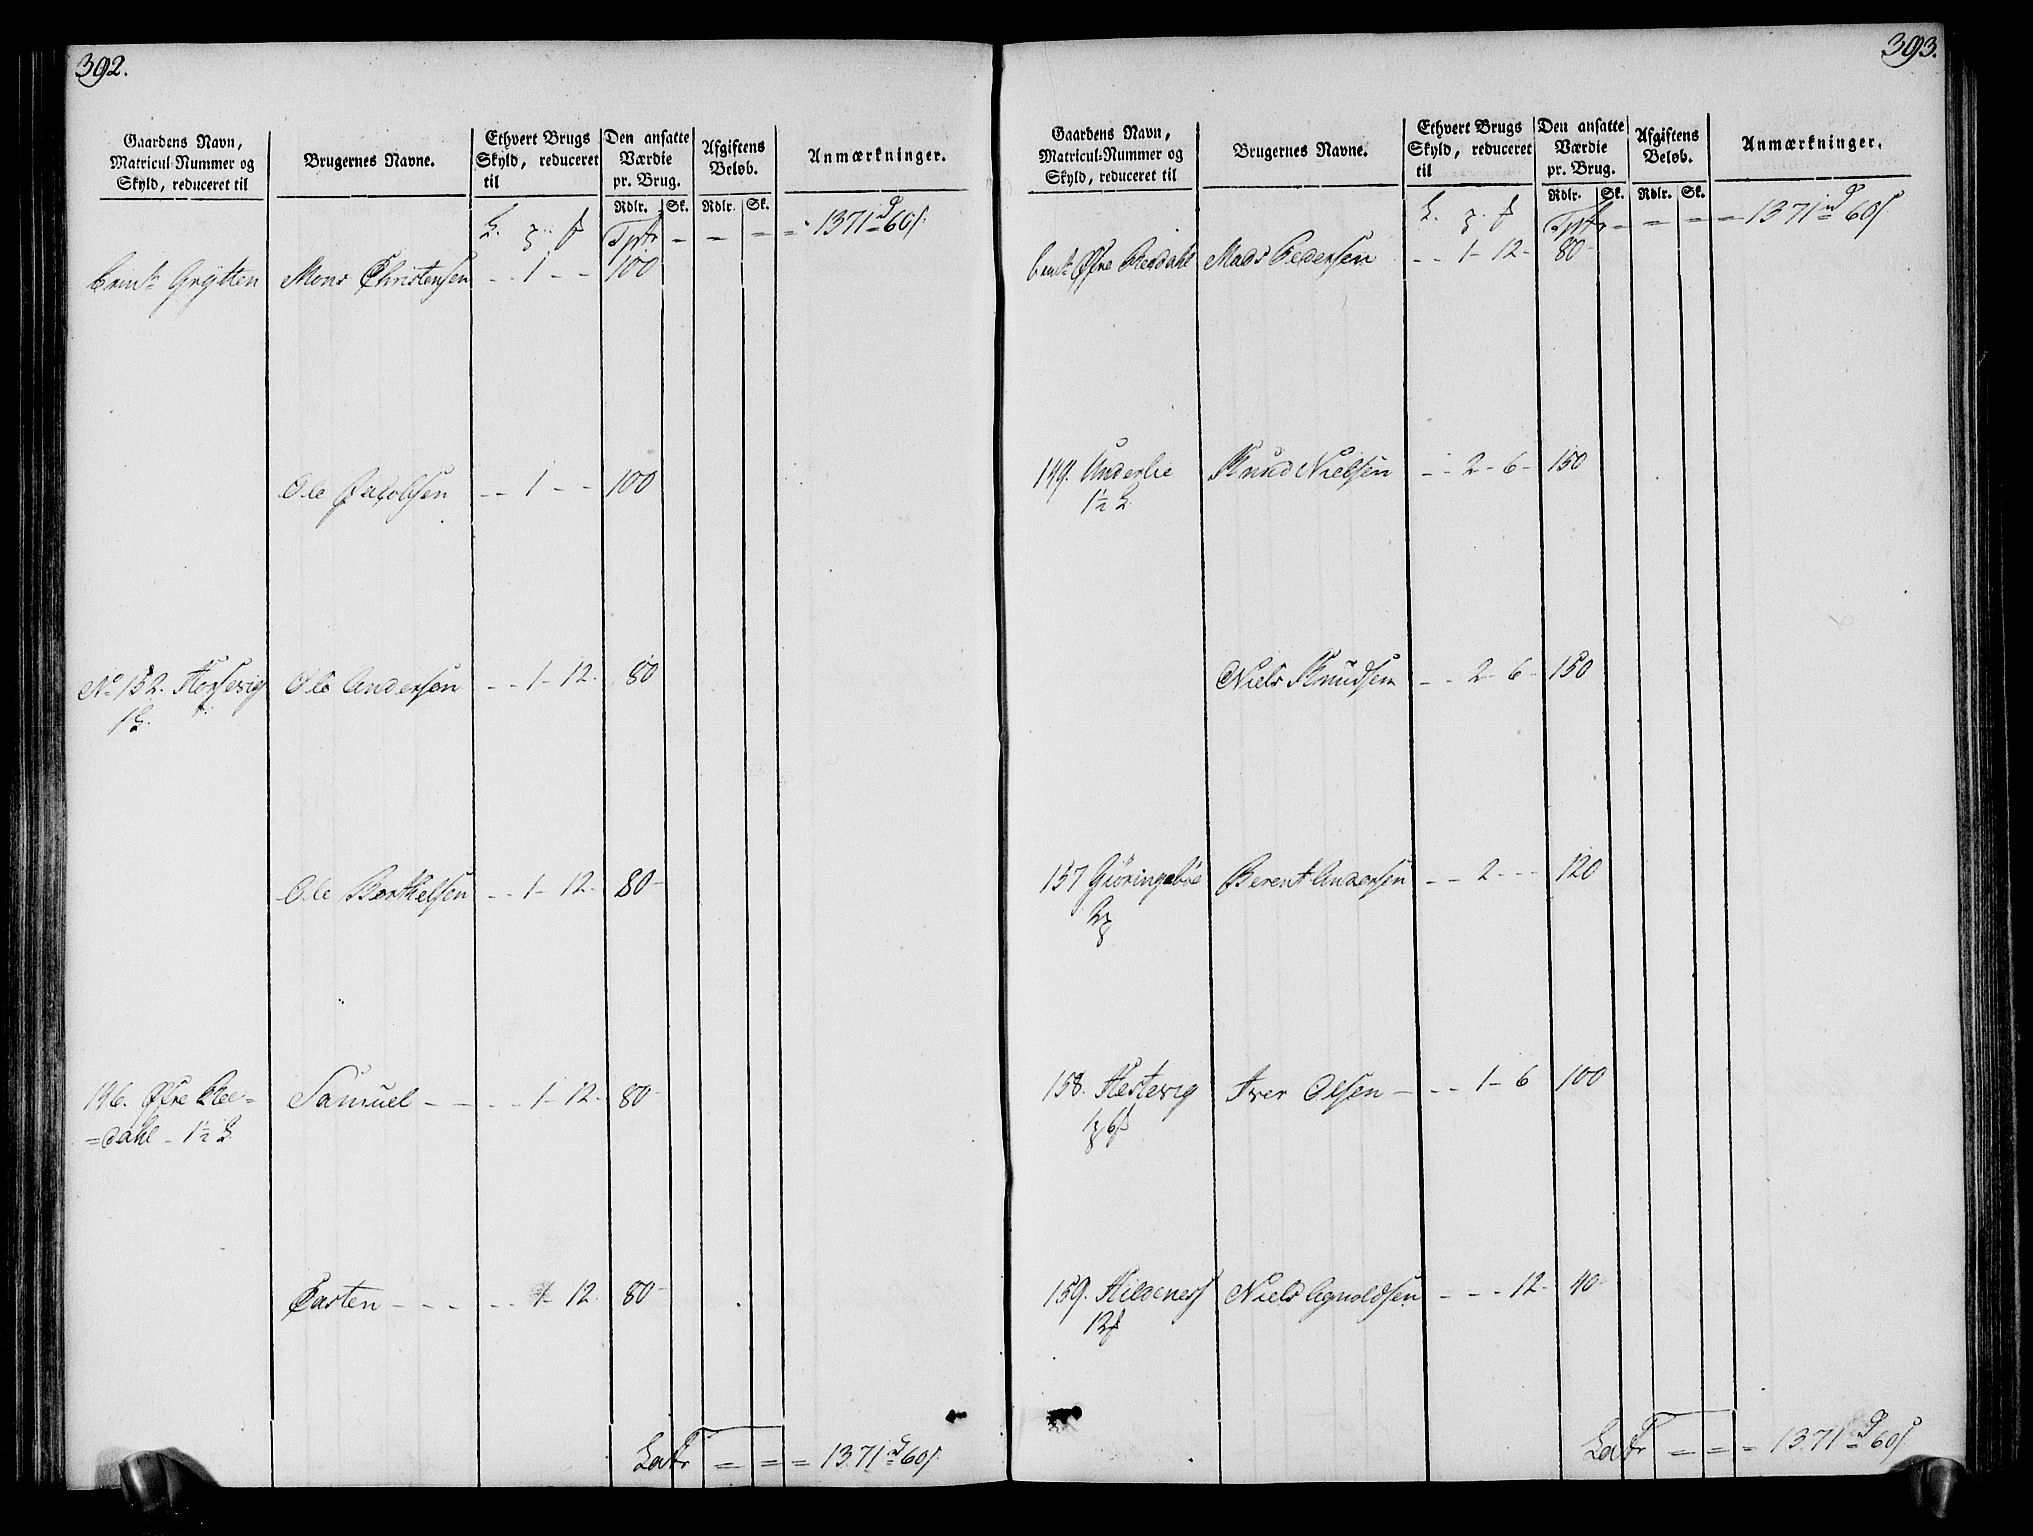 392.
Gaardens Navn, Matricul-Nummer og Skyld, reduceret til
Brugernes Navne.
Ethvert Brugs Skyld, reduceret til
Den ansatte Værdie pr. Brug.
Afgiftens Beløb.
Anmærkninger.
Rdlr. Sk. Rdlr. Sk.
Tpfr - - - = 1371 rd 60 s
Grytten Mons Christensen - - 1 - - 100
Ole Jacobsen - - 1 - - 100
No 152. Horsevig Ole Andersen - - 1 - 12 - 80
Ole Barthelsen - - 1 - 12 - 80 -
146. Øfre Blee= Samuel - - - - 1 - 12 - 80 -
=dahl - 1½
Carsten - - - - - 1 - 12 80 -
Latr = = = 1371 rd 60 s
393.
Gaardens Navn, Matricul-Nummer og Skyld, reduceret til
Brugernes Navne.
Ethvert Brugs Skyld, reduceret til
Den ansatte Værdie pr. Brug.
Afgiftens Beløb.
Anmærkninger.
Rdlr. Sk. Rdlr. Sk.
Tpfr - - - = 1371 rd 60 s
Øfre Bleedahl Mads Pedersen - - 1 - 12 - 80 -
149. Underlie Knud Nielsen - - 2 - 6 - 150
1½
Niels Knudsen - - 2 - 6 - 150
157 Giøringsbøe Berent Andersen - - 2 - - - 120
158. Hestevig Iver Olsen - - - 1 - 6 100
159. Hildenes Niels Agnoldsen - - - 12 - 40 -
12
Latr = = = 1371 rd 60 s